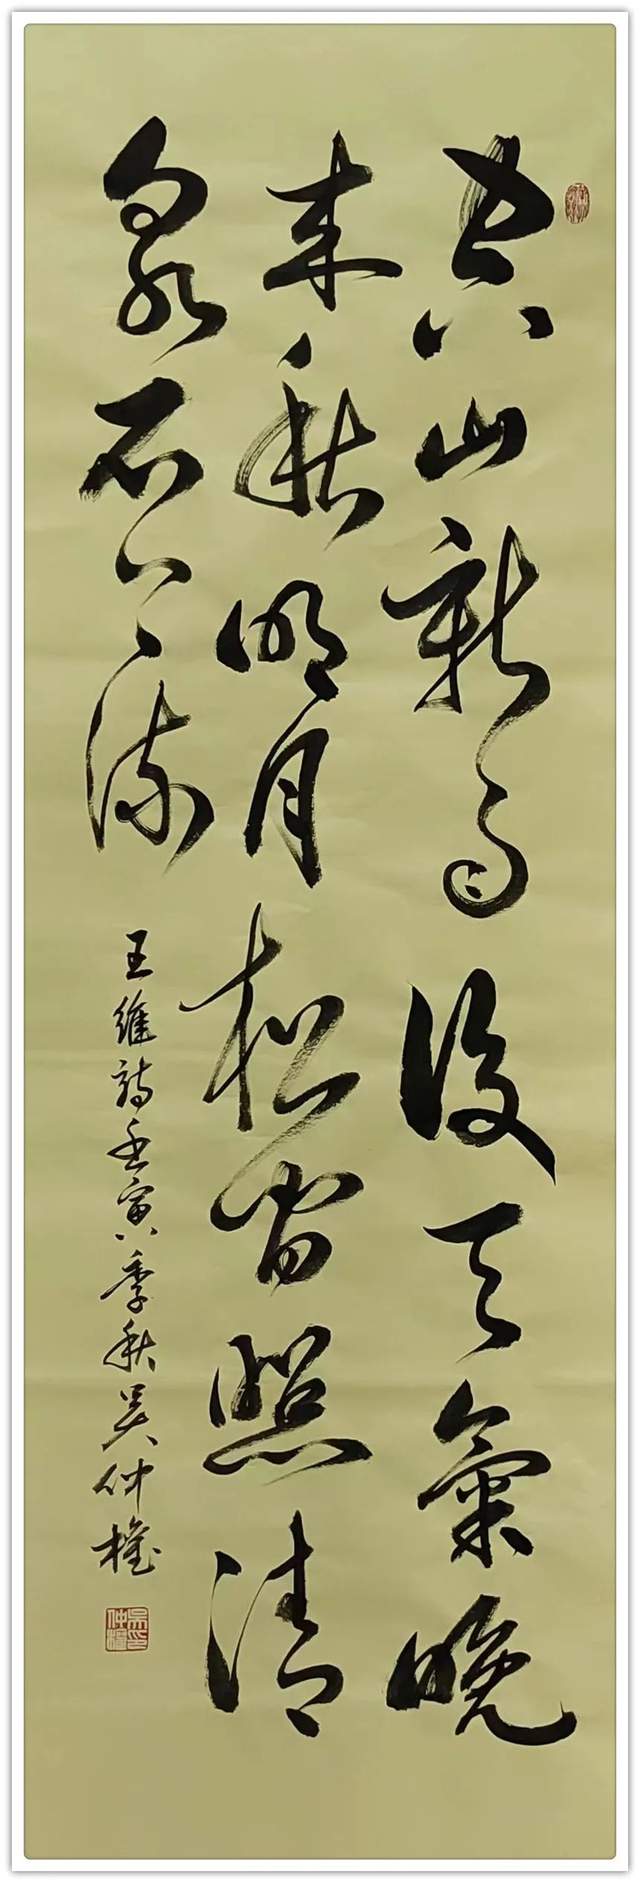 空山新雨後天氣晚
来秋明月松間照清
泉石上流
王維詩壬寅季秋吴仲